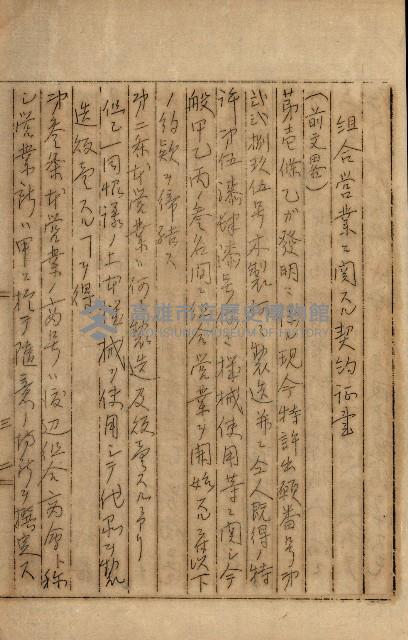 組合営業ニ関スル契約証書
(前文畧)
第壱條乙ガ發明ニ係ル現今特許出願番号第
弐弐捌玖伍号木製 製造並ニ仝人既得ノ特
許第伍漆肆漆号 機械使用等ニ関シ今
般甲乙丙ノ参名間ニ組合営業ヲ開始スル為以下
ノ約款ヲ締結ス
第二條本営業ハ何 製造及販賣スルニアリ
但シ一同協議ノ上本 機械ヲ使用シテ代 品ヲ製
造販賣スルコトヲ得
第参條本営業ノ商号ハ渡辺組合商會ト称
シ営業所ハ甲ニ於テ随意ノ場所ヲ撰定ス
高雄市立歷史博物館
KAOHSIUNG MUSEUM OF HISTORY